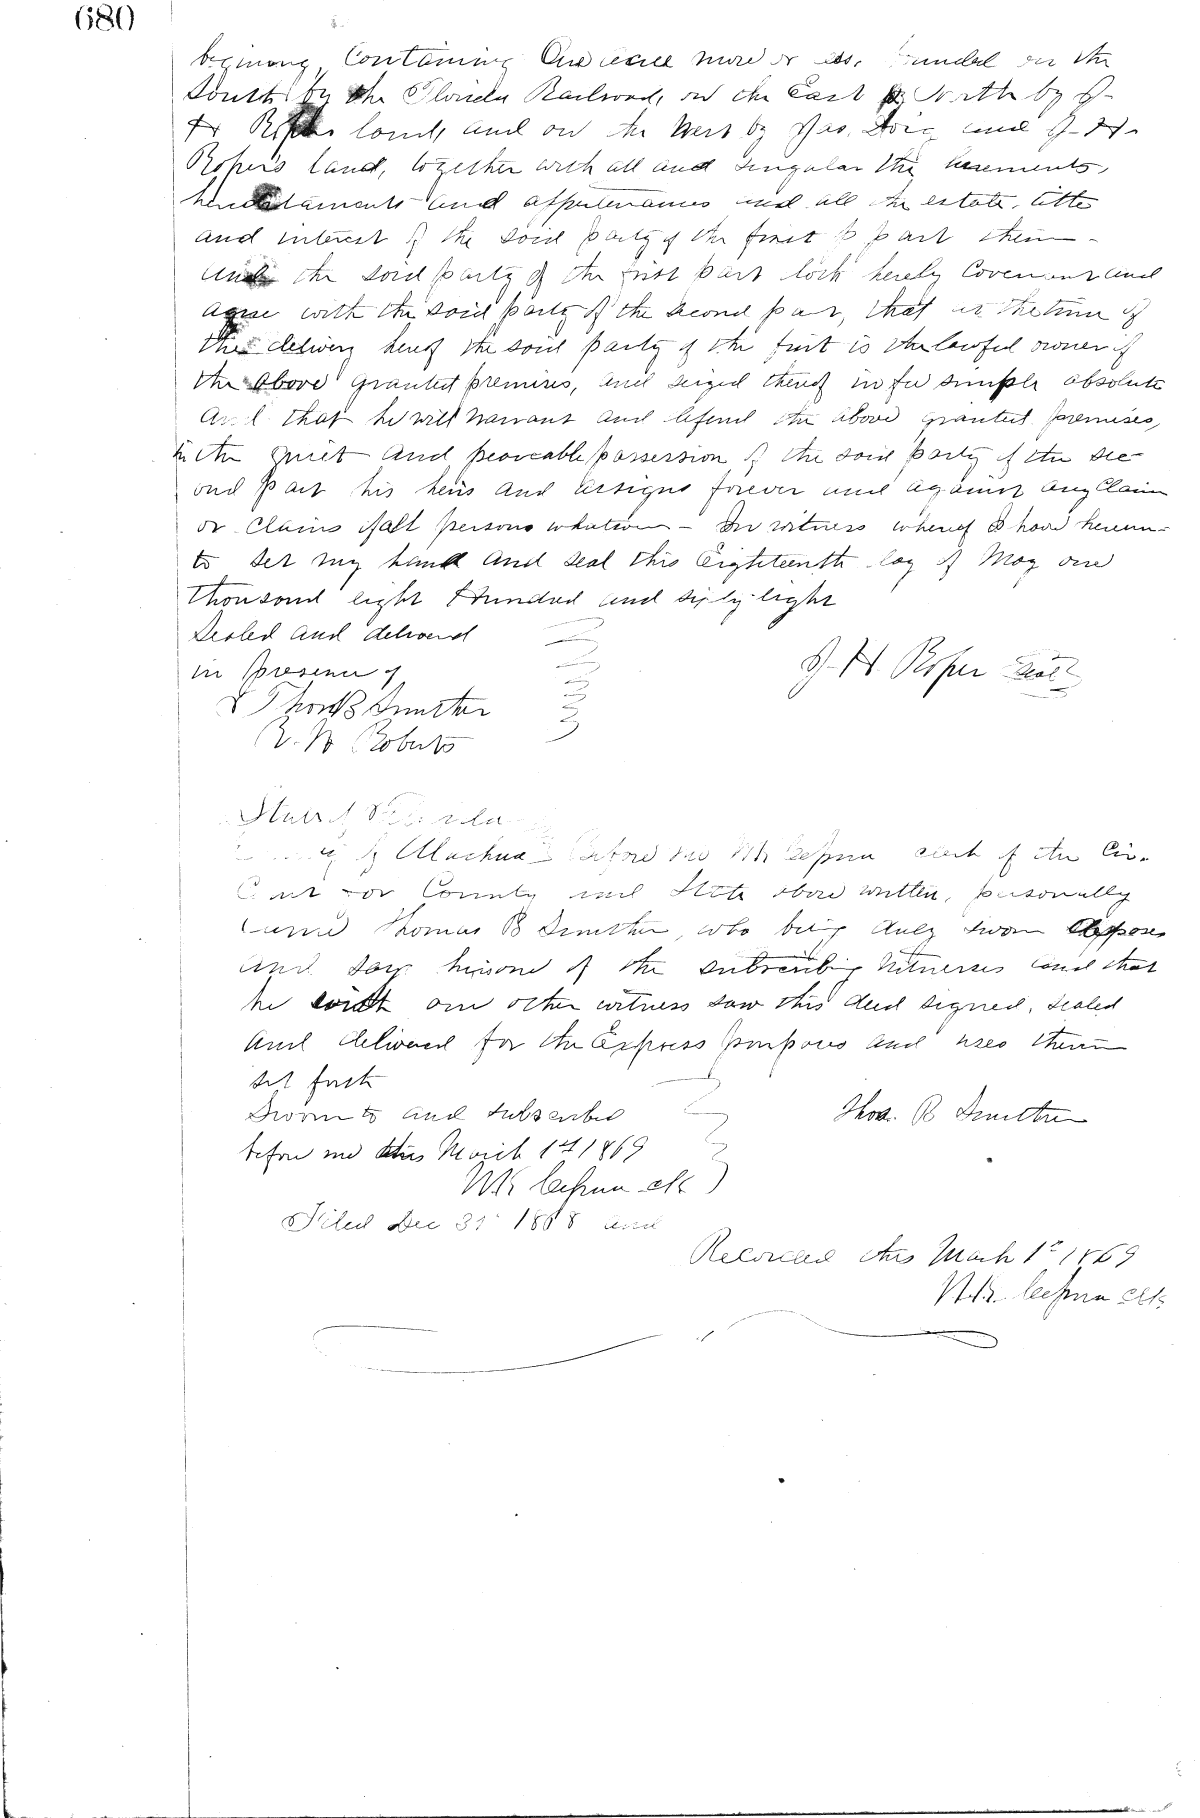 680
begining, Containing One acre more or less, bounded on the
South by the Florida Railroad, on the East & North by J-
H Ropers land, and on the West by Jas. Doig and J-H-
Ropers land, together with all and singular the easements,
hereditaments and appertenances and all the estate, title
and interest of the said party of the first part therein-
And the said party of the first part doth hereby Covenant and
agree with the said party of the second part, that at the time of
the delivery hereof the said party of the first is the lawful owner of
the above granted premises, and seized thereof in fee simple absolute
And that he will warrant and defend the above granted premises,
in the quiet and peaceable possession of the said party of the sec-
ond part his heirs and assigns forever and against any Claim
or Claims of all persons whatsoever - In witness whereof I have hereun-
to set my hand and seal this Eighteenth day of May one
thousand eight Hundred and sixty-eight
Sealed and delivered
in presence of
J-H. Roper Seal
Thos B Smither
R. W Roberts
State of Florida
County of Alachua Before me clerk of the Cir.
Court for County and State above written, personally
came Thomas B Smither, who being duly sworn deposes
and says he is one of the subscribing witnesses and that
he with one other witness saw this deed signed, sealed
and delivered for the Express purposes and uses therein
set forth
Sworn to and subscribed
Thos. B Smither
before me this March 1st 1869
Clk
Filed Dec 31st 1868 and
Recorded this March 1st 1869
Clk